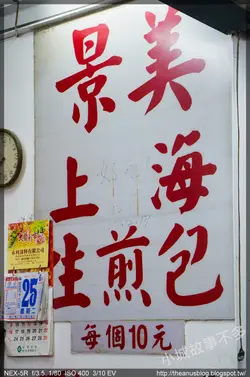 景美
上海
生煎包
每個10元
25
小城故事不多
NEX-5R f/3.5 1/80 ISO 400 3/10 EV
http://theanusblog.blogspot.tw